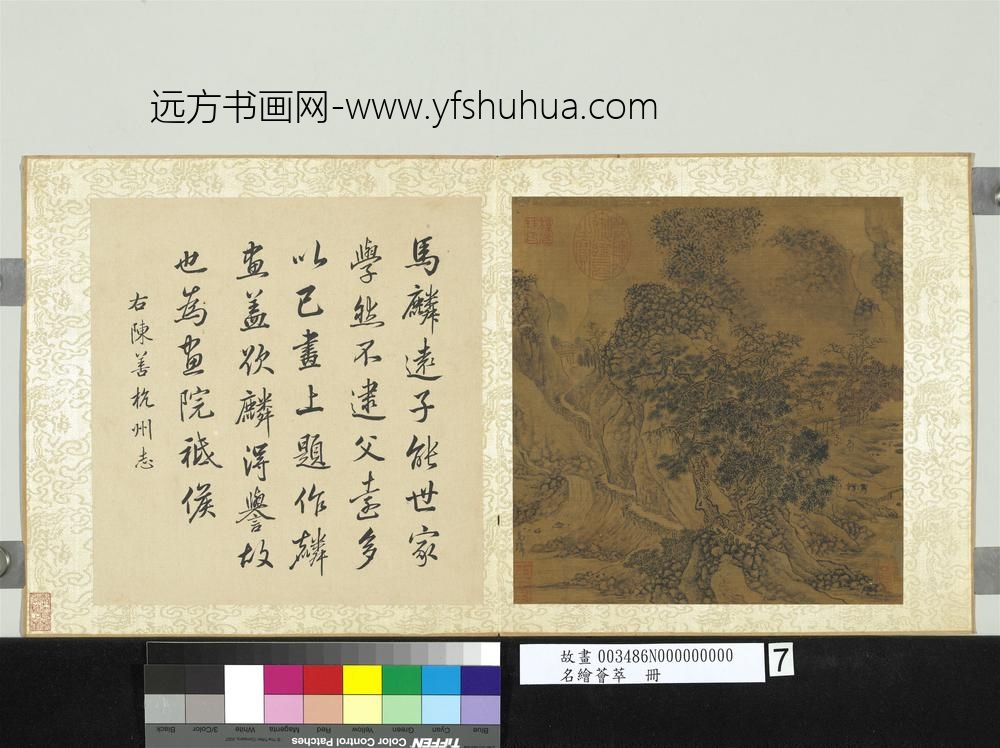 远方书画网-www.yfshuhua.com
馬麟遠子能世家
學然不逮父遠多
以己畫上題作麟
畫蓋欲麟得譽故
也為畫院祗候
右陳善杭州志
故畫 003486N000000000
名繪薈萃 冊
7
Black
3/Color
White
Magenta
Red
Yellow
Green
Cyan
Blue
© The Tiffen Company, 2007
TIFFEN Color Control Patches